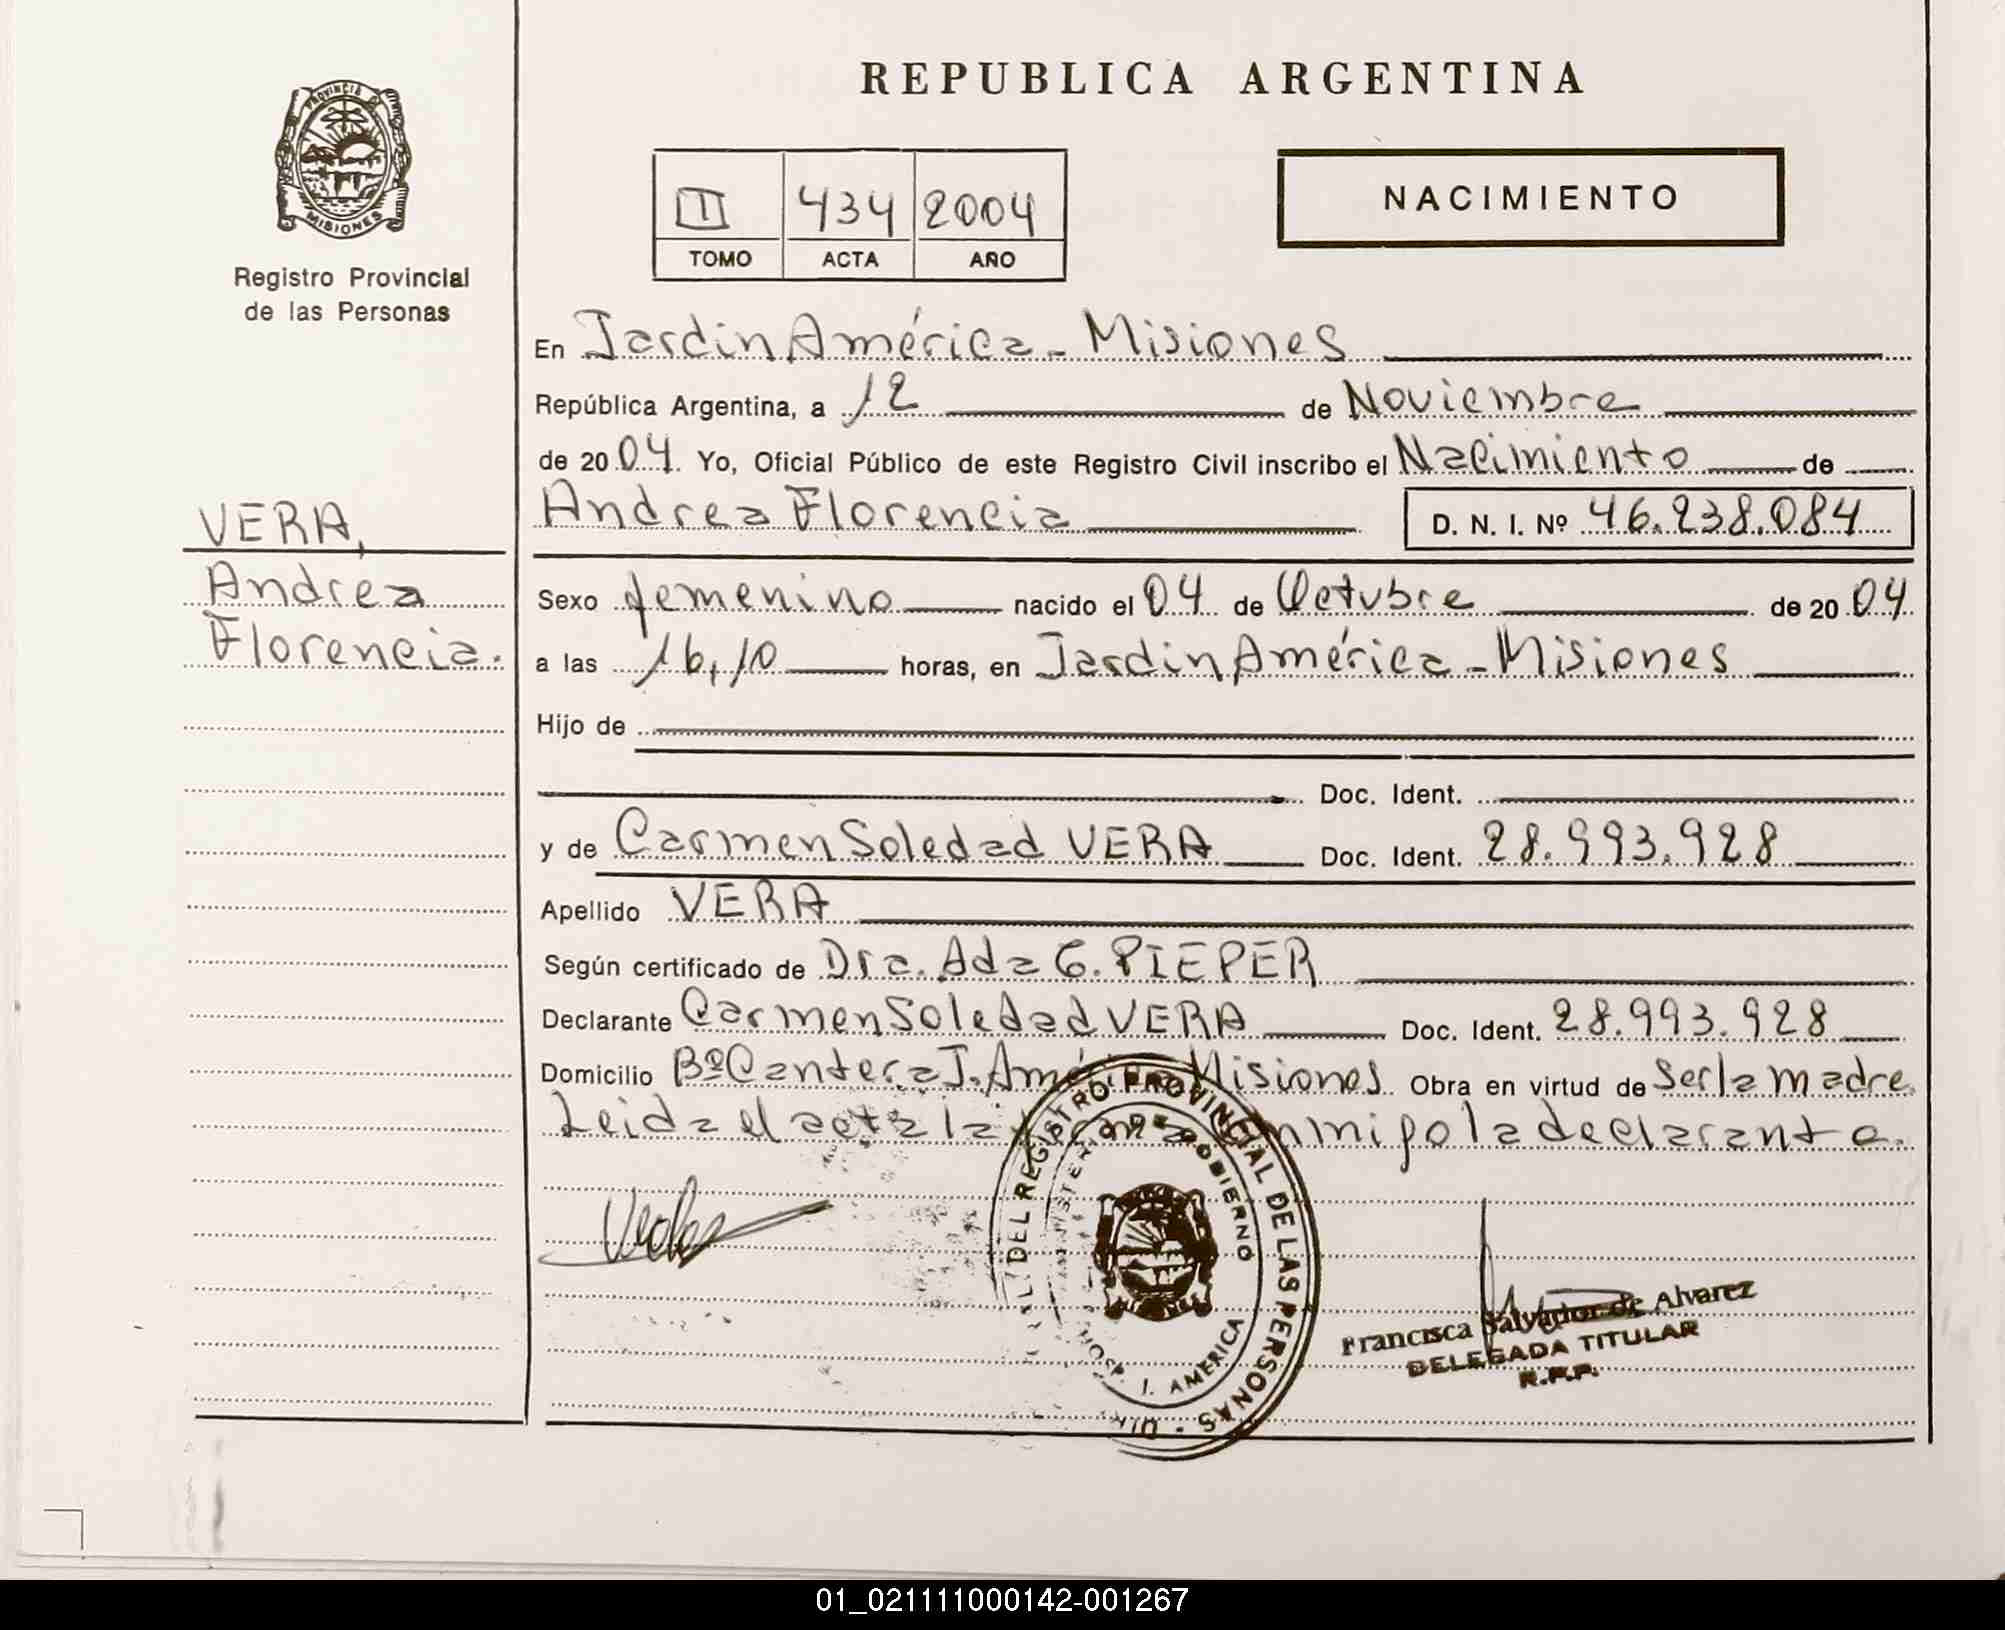 REPUBLICA ARGENTINA
PROVINCIA DE
MISIONES
Registro Provincial
de las Personas
II 434 2004
TOMO ACTA AÑO
NACIMIENTO
En Jardin América - Misiones
República Argentina, a 12 de Noviembre
de 2004. Yo, Oficial Público de este Registro Civil inscribo el Nacimiento de
Andrea Florencia D. N. I. Nº 46.238.084
VERA,
Andrea
Florencia.
Sexo femenino nacido el 04 de Octubre de 2004
a las 16,10 horas, en Jardin América - Misiones
Hijo de
Doc. Ident.
y de Carmen Soledad VERA Doc. Ident. 28.993.928
Apellido VERA
Según certificado de Dra. Ada G. PIEPER
Declarante Carmen Soledad VERA Doc. Ident. 28.993.928
Domicilio Bº Cantera J. América Misiones Obra en virtud de Ser la madre.
Leida el acta la con mi po la declarante.
DEL REGISTRO PROVINCIAL DE LAS PERSONAS - DIR
MINISTERIO DE GOBIERNO
HOSP. J. AMERICA
Francisca Salvador de Alvarez
DELEGADA TITULAR
R.P.P.
01_021111000142-001267